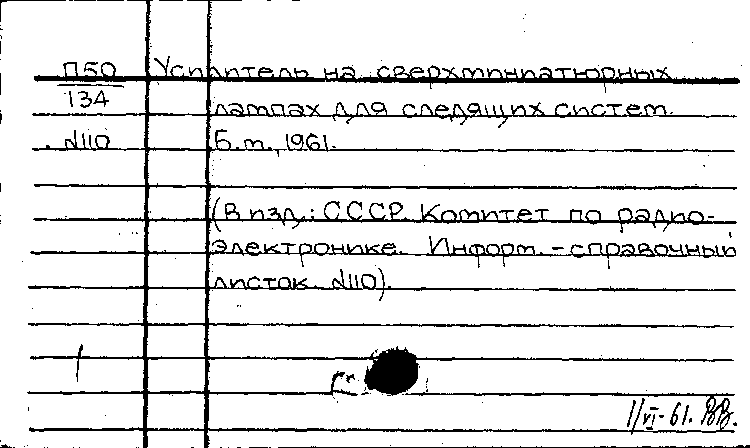 П50 Усилитель на сверхминиатюрных
134 лампах для следящих систем.
№110 Б.м., 1961.
(В изд.: СССР. Комитет по радио-
электронике. Информ.-справочный
листок. №110).
1/VI-61. ВВ.